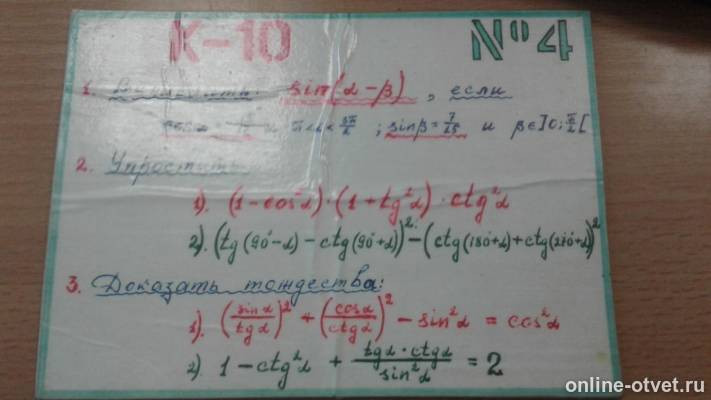 К-10 №4
1. sin(α-β), если
cos α = и π<α<3π/2; sinβ=7/25 и β∈]0;π/2[
2. Упростить:
1). (1-cos²α)·(1+tg²α)·ctg²α
2). (tg(90°-α)-ctg(90°+α))²-(ctg(180°+α)+ctg(270°+α))²
3. Доказать тождества:
1). (sinα/tgα)²+(cosα/ctgα)²-sin²α = cos²α
2) 1-ctg²α + tgα·ctgα/sin²α = 2
online-otvet.ru